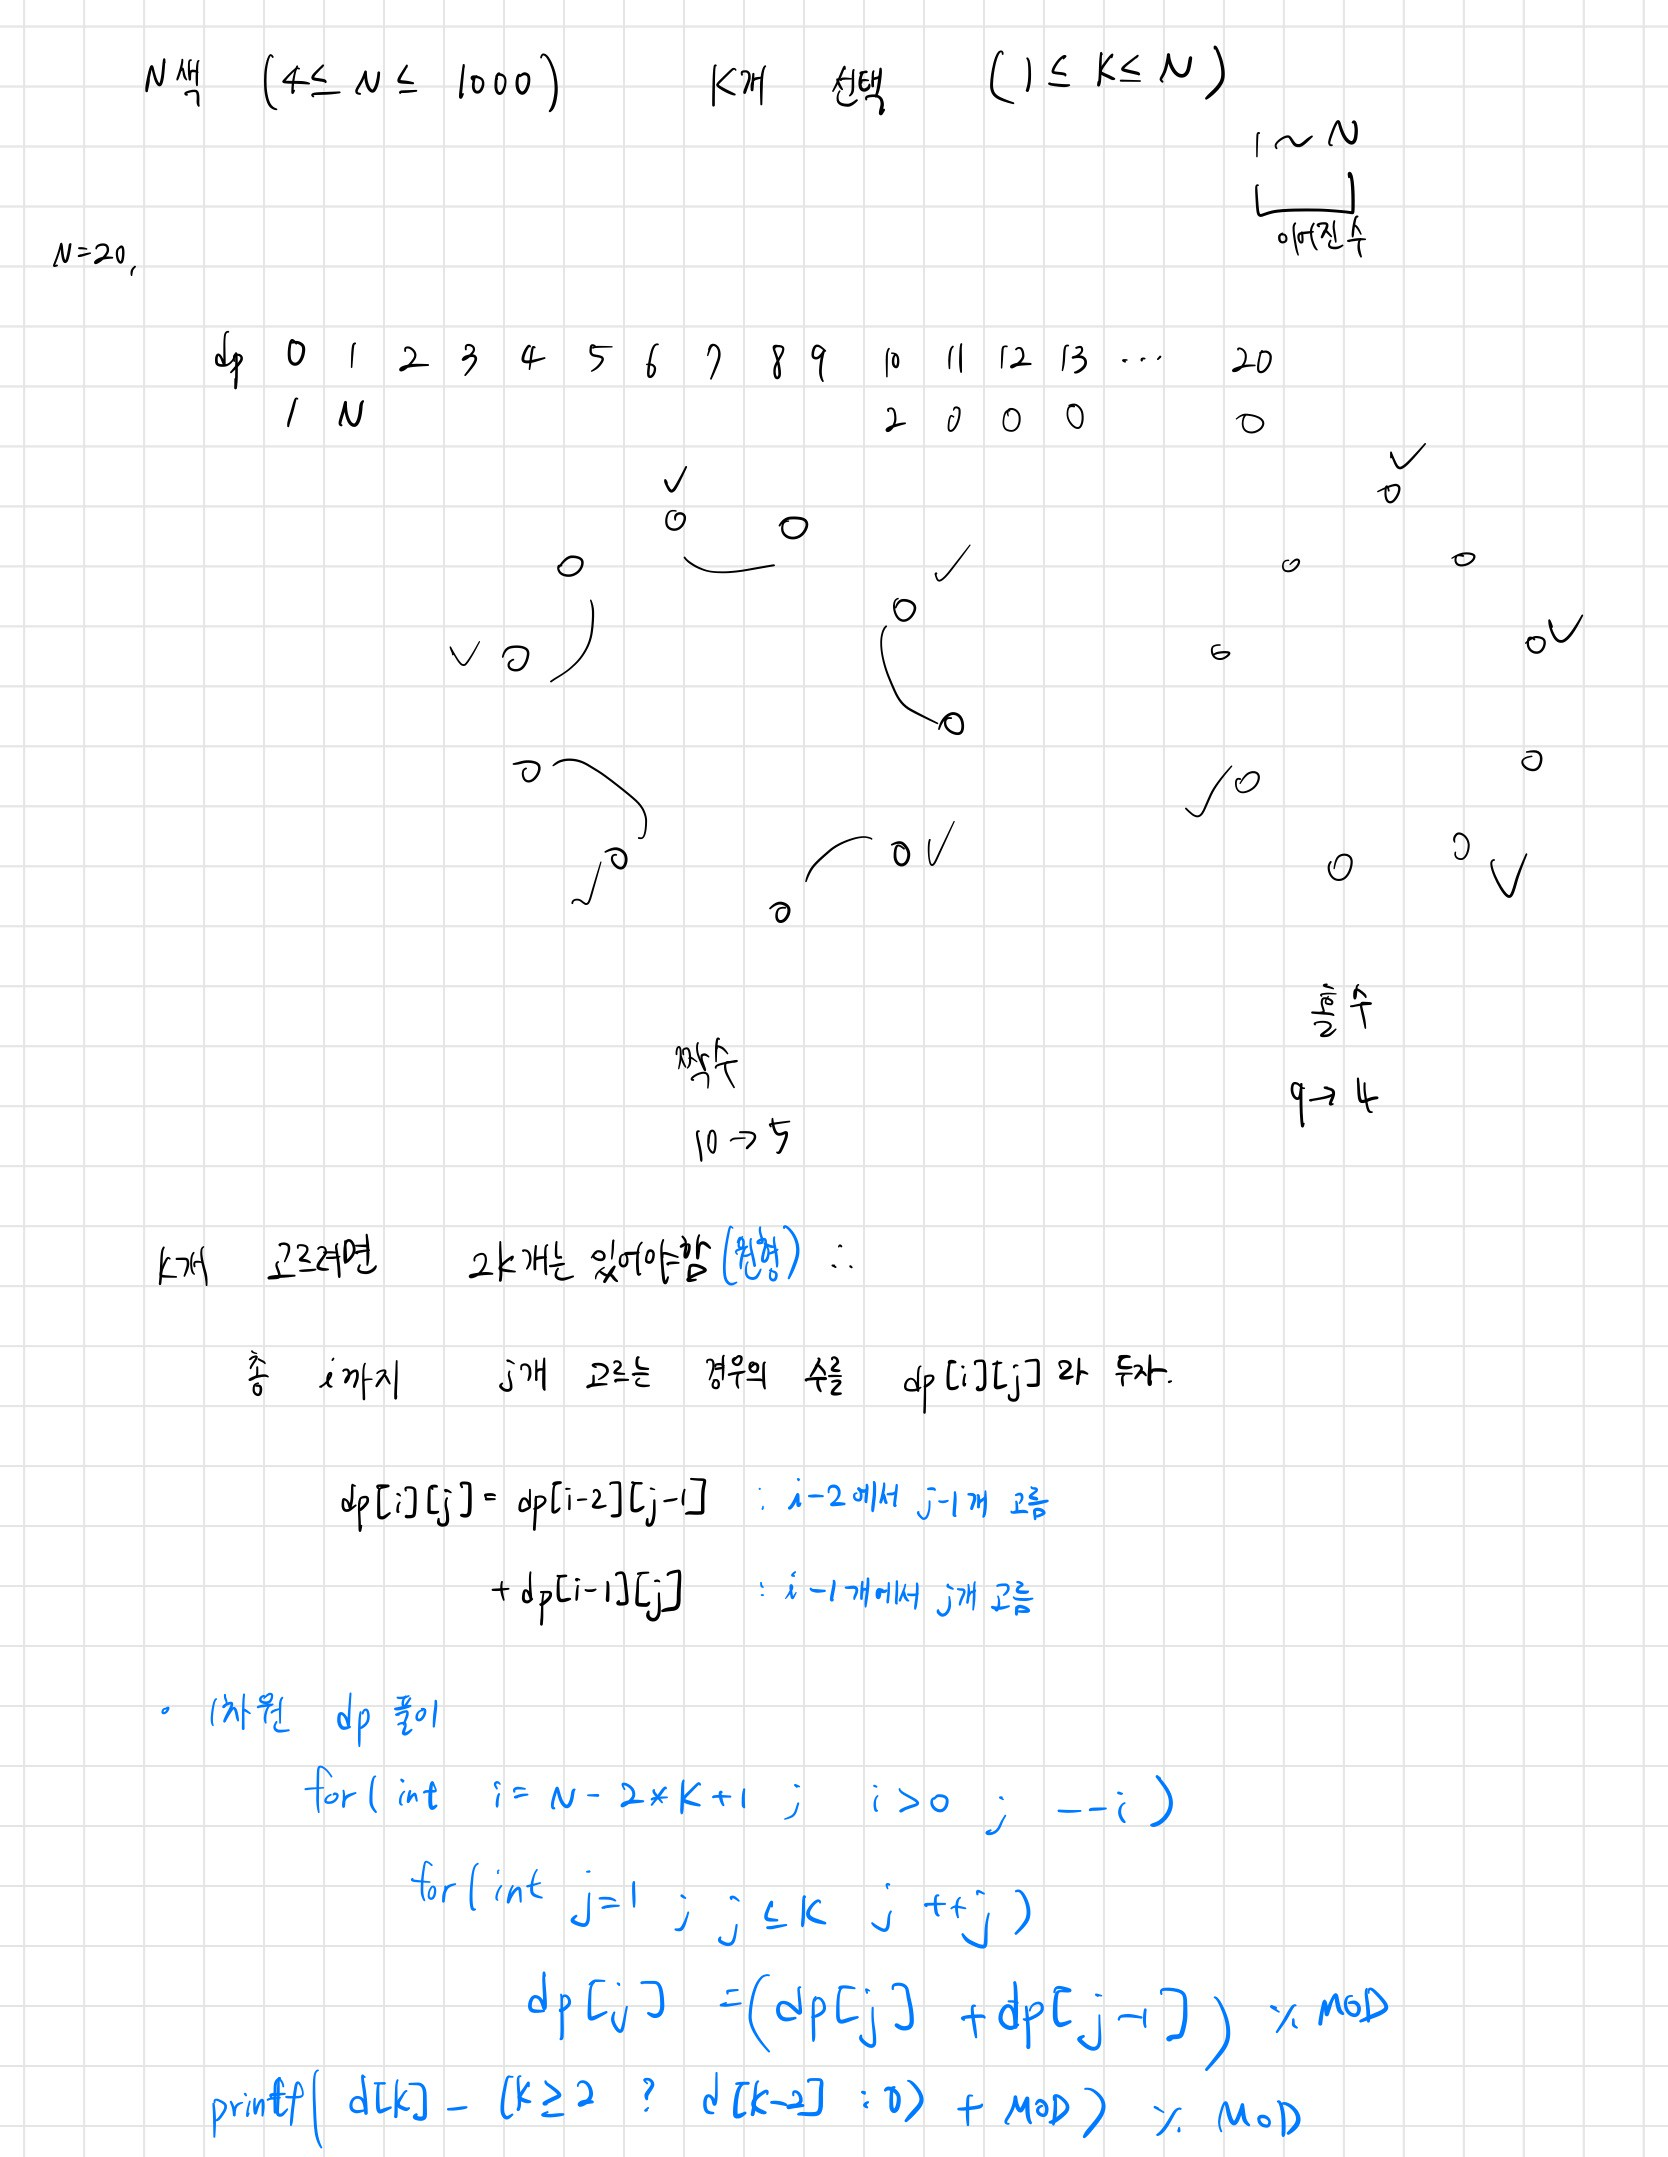 N색 (4≤ N ≤ 1000) K개 선택 (1 ≤ K ≤ N)
1 ~ N
이어진 수
N=20,
dp 0 1 2 3 4 5 6 7 8 9 10 11 12 13 ... 20
1 N 2 0 0 0 0
홀수
9→4
짝수
10→5
K개 고르려면 2K개는 있어야함 (원형) ∴
총 i까지 j개 고르는 경우의 수를 dp[i][j]라 두자.
dp[i][j] = dp[i-2][j-1] : i-2에서 j-1개 고름
+ dp[i-1][j] : i-1개에서 j개 고름
• 1차원 dp 풀이
for(int i= N-2*K+1 ; i>0 ; --i)
for(int j=1 ; j≤K ; ++j)
dp[j] =(dp[j] +dp[j-1]) % MOD
printf( d[k] - (k≥2 ? d[k-2] : 0) + MOD) % MOD